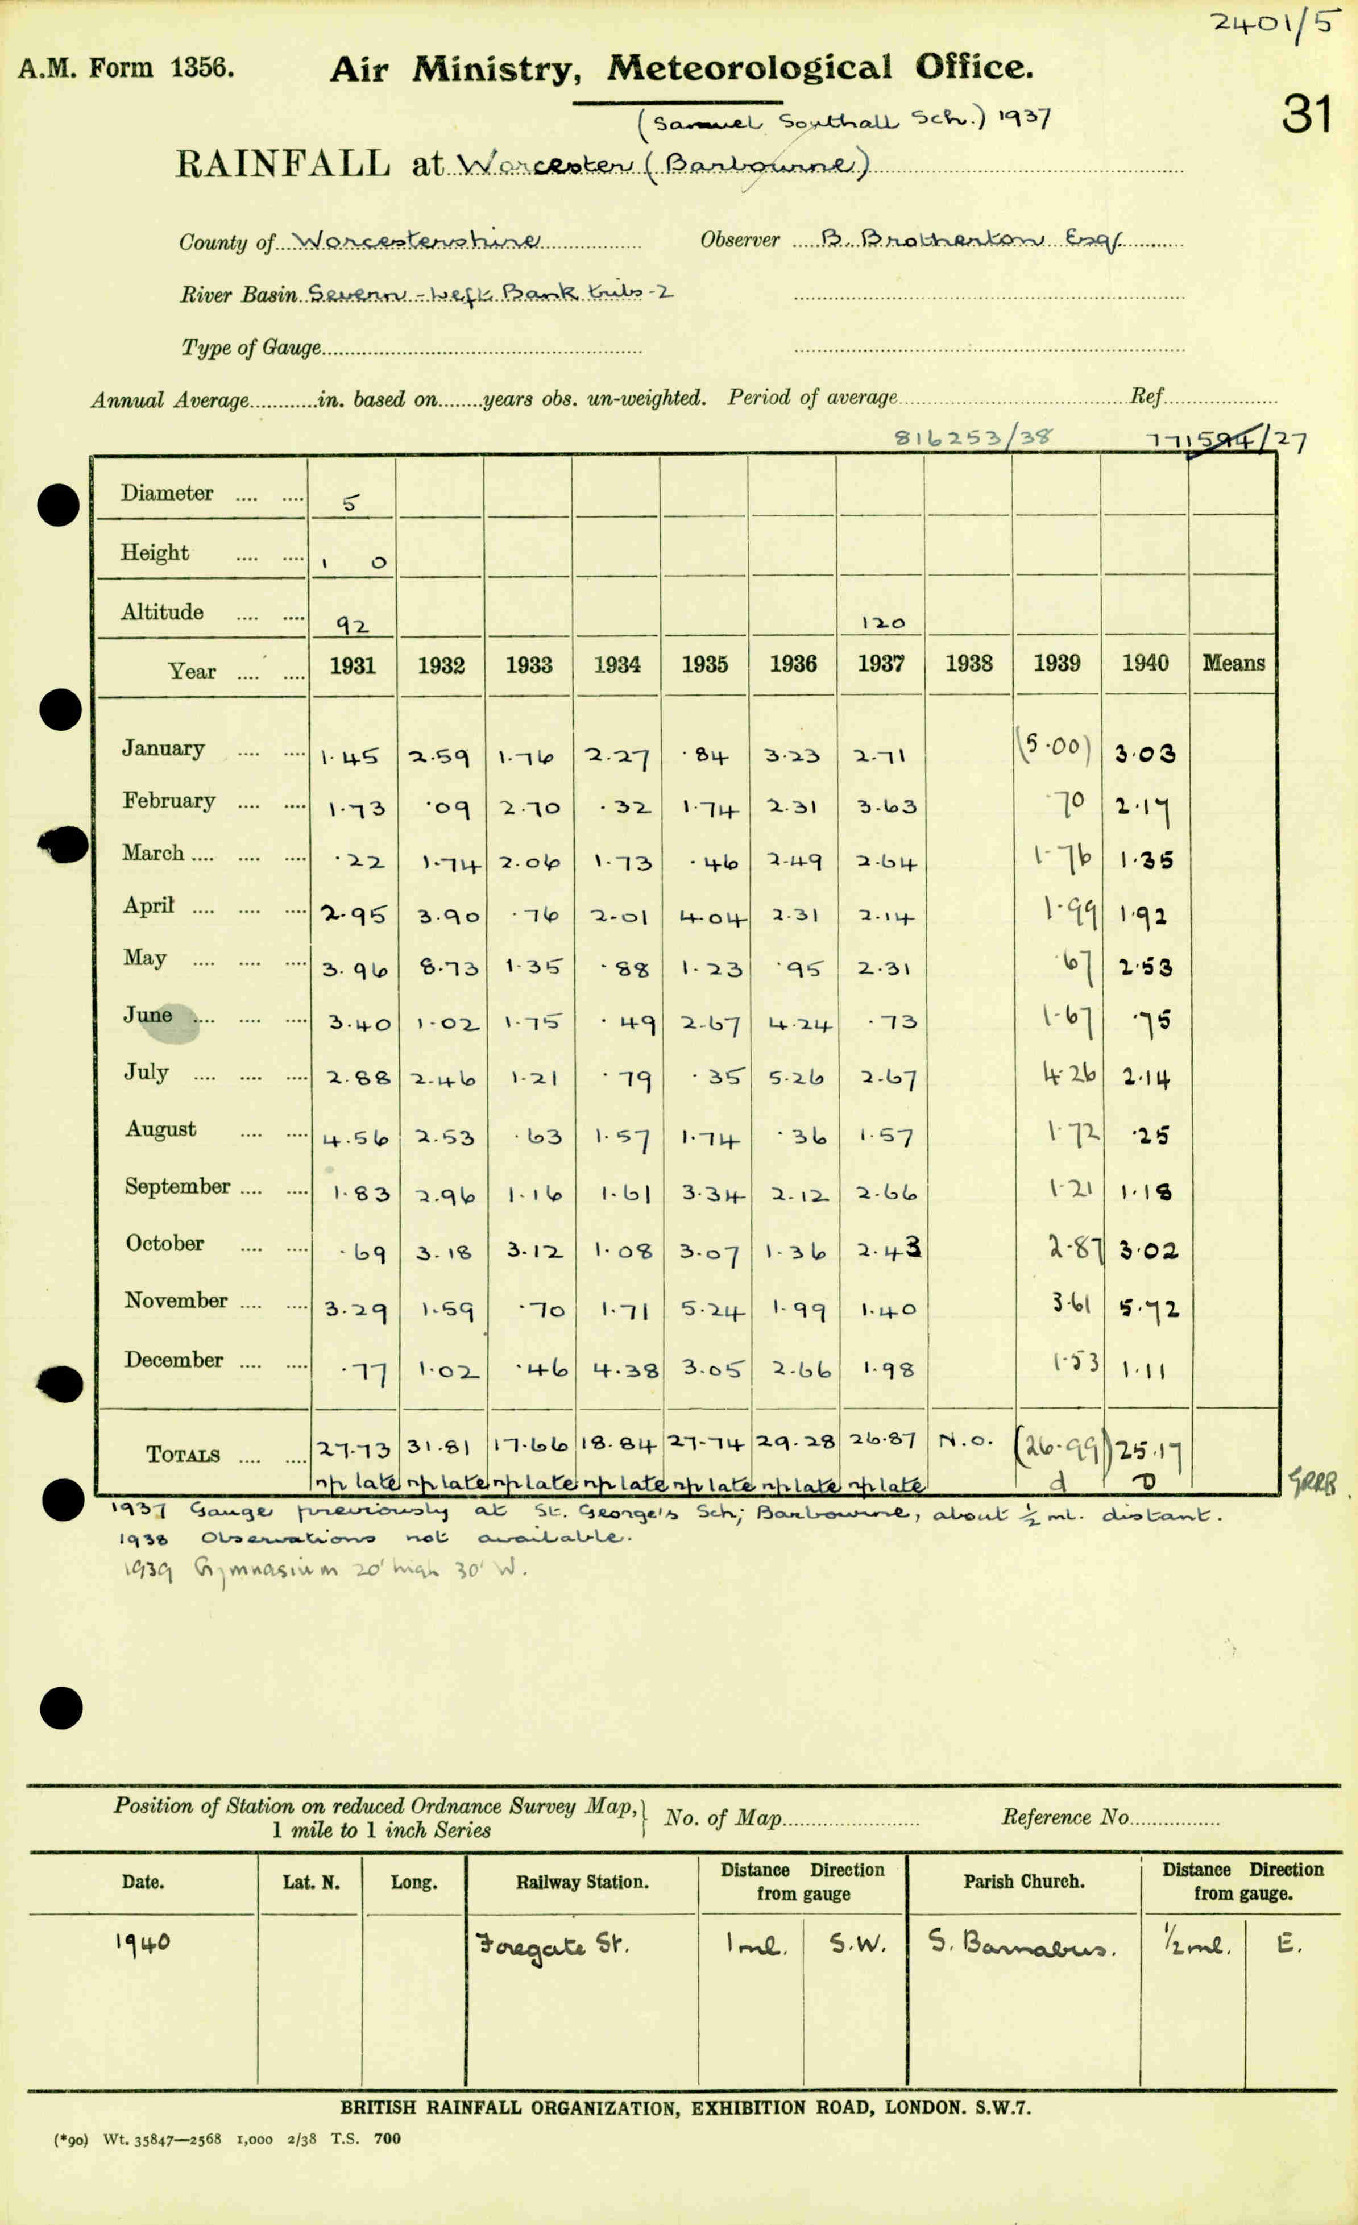 2401/5
A.M. Form 1356. Air Ministry, Meteorological Office.
31
(Samuel Southall Sch.) 1937
RAINFALL at Worcester (Barbourne)
County of Worcestershire Observer B. Brotherton Esq/
River Basin Severn - Left Bank tribs-2
Type of Gauge
Annual Average in. based on years obs. un-weighted. Period of average Ref
816253/38 771594/27
Diameter 5
Height 1 0
Altitude 92 120
Year 1931 1932 1933 1934 1935 1936 1937 1938 1939 1940 Means
January 1.45 2.59 1.76 2.27 .84 3.23 2.71 (5.00) 3.03
February 1.73 .09 2.70 .32 1.74 2.31 3.63 .70 2.17
March .22 1.74 2.06 1.73 .46 2.49 2.64 1.76 1.35
April 2.95 3.90 .76 2.01 4.04 2.31 2.14 1.99 1.92
May 3.96 8.73 1.35 .88 1.23 .95 2.31 .67 2.53
June 3.40 1.02 1.75 .49 2.67 4.24 .73 1.67 .75
July 2.88 2.46 1.21 .79 .35 5.26 2.67 4.26 2.14
August 4.56 2.53 .63 1.57 1.74 .36 1.57 1.72 .25
September 1.83 2.96 1.16 1.61 3.34 2.12 2.66 1.21 1.18
October .69 3.18 3.12 1.08 3.07 1.36 2.43 2.87 3.02
November 3.29 1.59 .70 1.71 5.24 1.99 1.40 3.61 5.72
December .77 1.02 .46 4.38 3.05 2.66 1.98 1.53 1.11
TOTALS 27.73 31.81 17.66 18.84 27.74 29.28 26.87 N.O. (26.99) 25.17
np late np late np late np late np late np late np late d D
1937 Gauge previously at St. George's Sch; Barbourne, about ½ ml. distant.
1938 Observations not available.
1939 Gymnasium 20' high 30' W.
Position of Station on reduced Ordnance Survey Map, 1 mile to 1 inch Series
No. of Map Reference No.
Date. Lat. N. Long. Railway Station. Distance Direction from gauge Parish Church. Distance Direction from gauge.
1940 Foregate St. 1 ml. S.W. S. Barnabus. ½ ml. E.
BRITISH RAINFALL ORGANIZATION, EXHIBITION ROAD, LONDON. S.W.7.
(*90) Wt. 35847—2568 1,000 2/38 T.S. 700